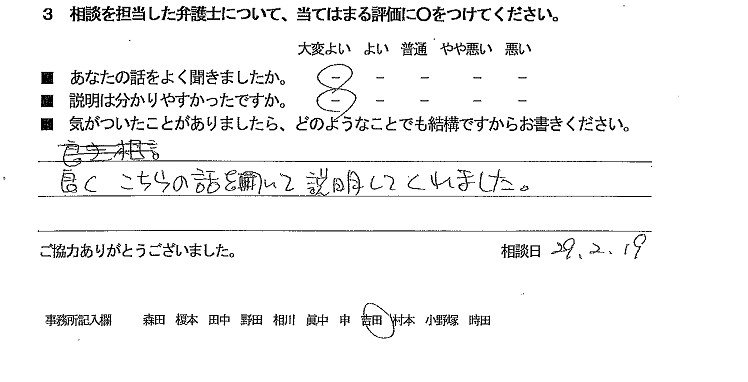 3 相談を担当した弁護士について、当てはまる評価に〇をつけてください。
大変よい よい 普通 やや悪い 悪い
■ あなたの話をよく聞きましたか。 - - - - -
■ 説明は分かりやすかったですか。 - - - - -
■ 気がついたことがありましたら、どのようなことでも結構ですからお書きください。
良く こちらの話を聞いて 説明してくれました。
ご協力ありがとうございました。 相談日 29.2.19
事務所記入欄 森田 榎本 田中 野田 相川 眞中 申 吉田 村本 小野塚 時田